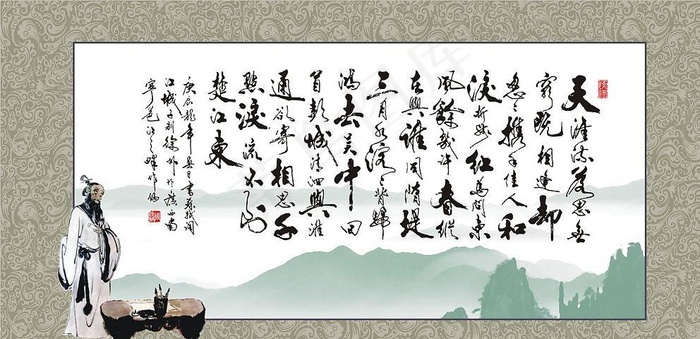 天涯流落思無
窮既相逢却
匆匆攜手佳人和
淚折殘紅為問東
風餘幾許春縱
在與誰同隋堤
三月水溶溶背歸
鴻去吳中回
首彭城清泗與淮
通欲寄相思千
點淚流不到
楚江東
庚辰龍年書蘇軾詞
江城子別徐州於